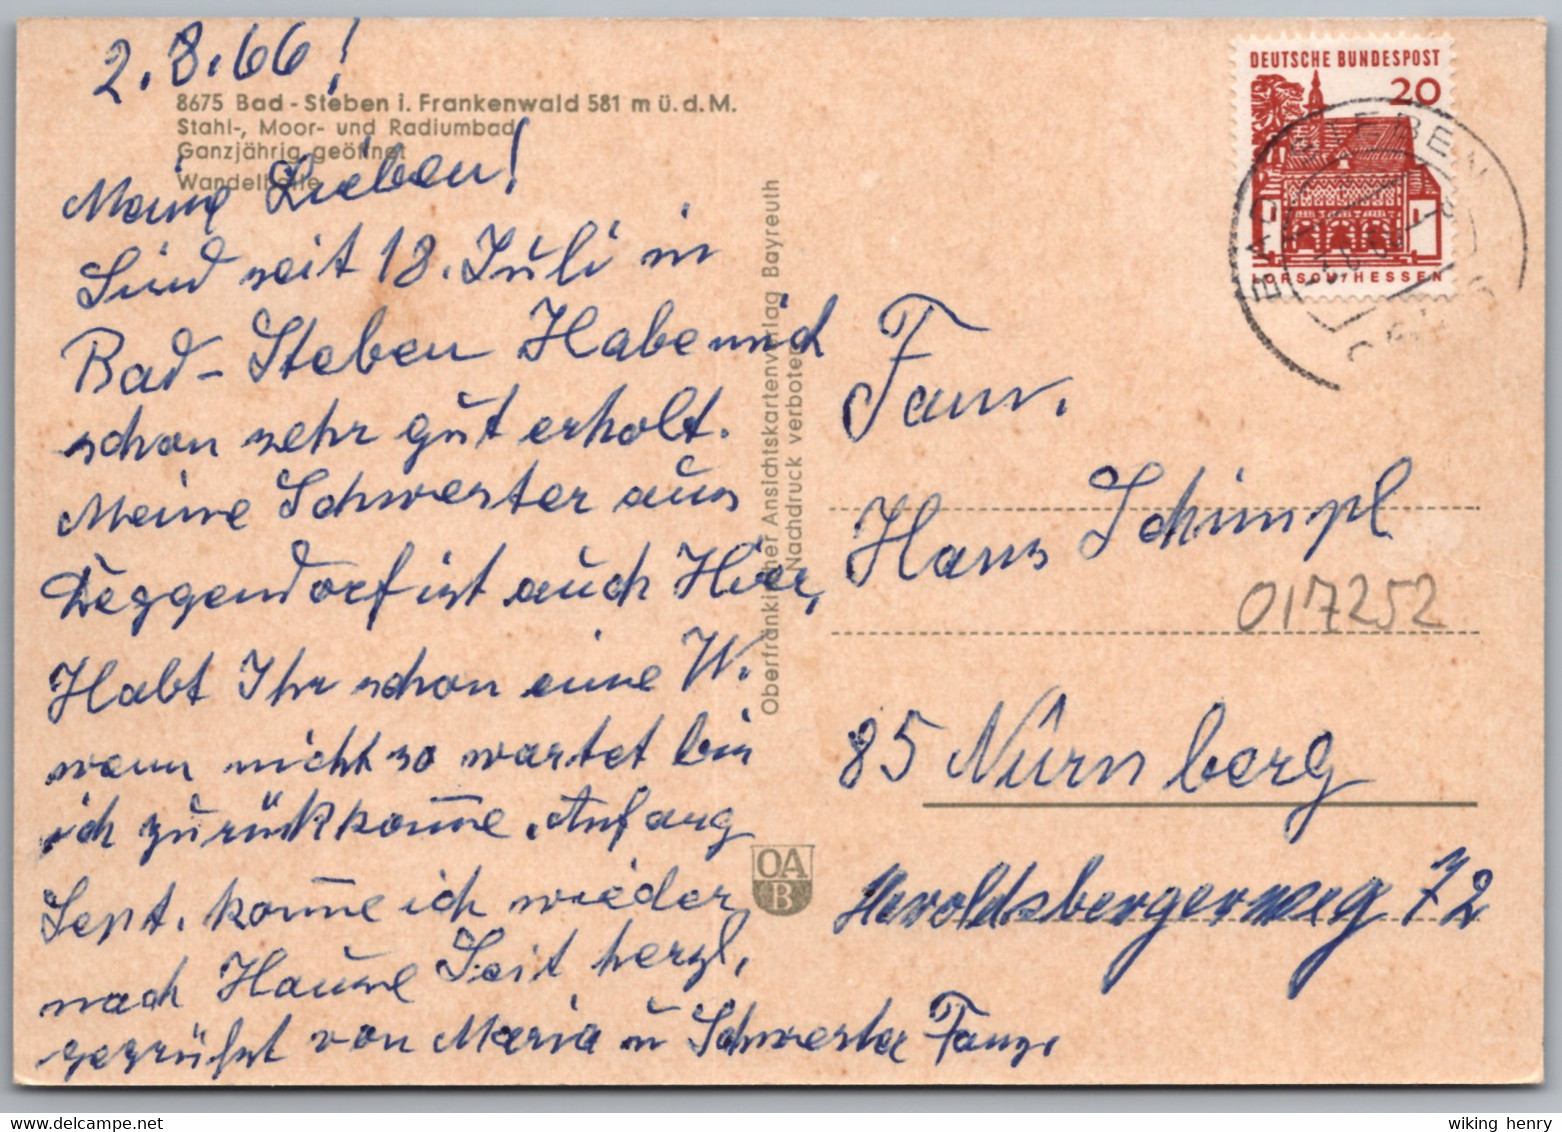 2.8.66!
8675 Bad-Steben i. Frankenwald 581 m ü. d. M.
Stahl-, Moor- und Radiumbad
Ganzjährig geöffnet
Wandelhalle
Meine Lieben!
Sind seit 18. Juli in
Bad-Steben Habe mich
schon sehr gut erholt.
Meine Schwester aus
Deggendorf ist auch Hier,
Habt Ihr schon eine W.
wenn nicht so wartet bis
ich zurückkom̅e. Anfang
Sept. kom̅e ich wieder
nach Hause Seit herzl,
gegrüßt von Maria u Schwester Fanny.
Oberfränkischer Ansichtskartenverlag Bayreuth
Nachdruck verboten
OA
B
DEUTSCHE BUNDESPOST
20
LORSCH/HESSEN
BAD STEBEN
Fam.
Hans Schimpl
017252
85 Nürnberg
Heroldsbergerweg 72
wiking henry